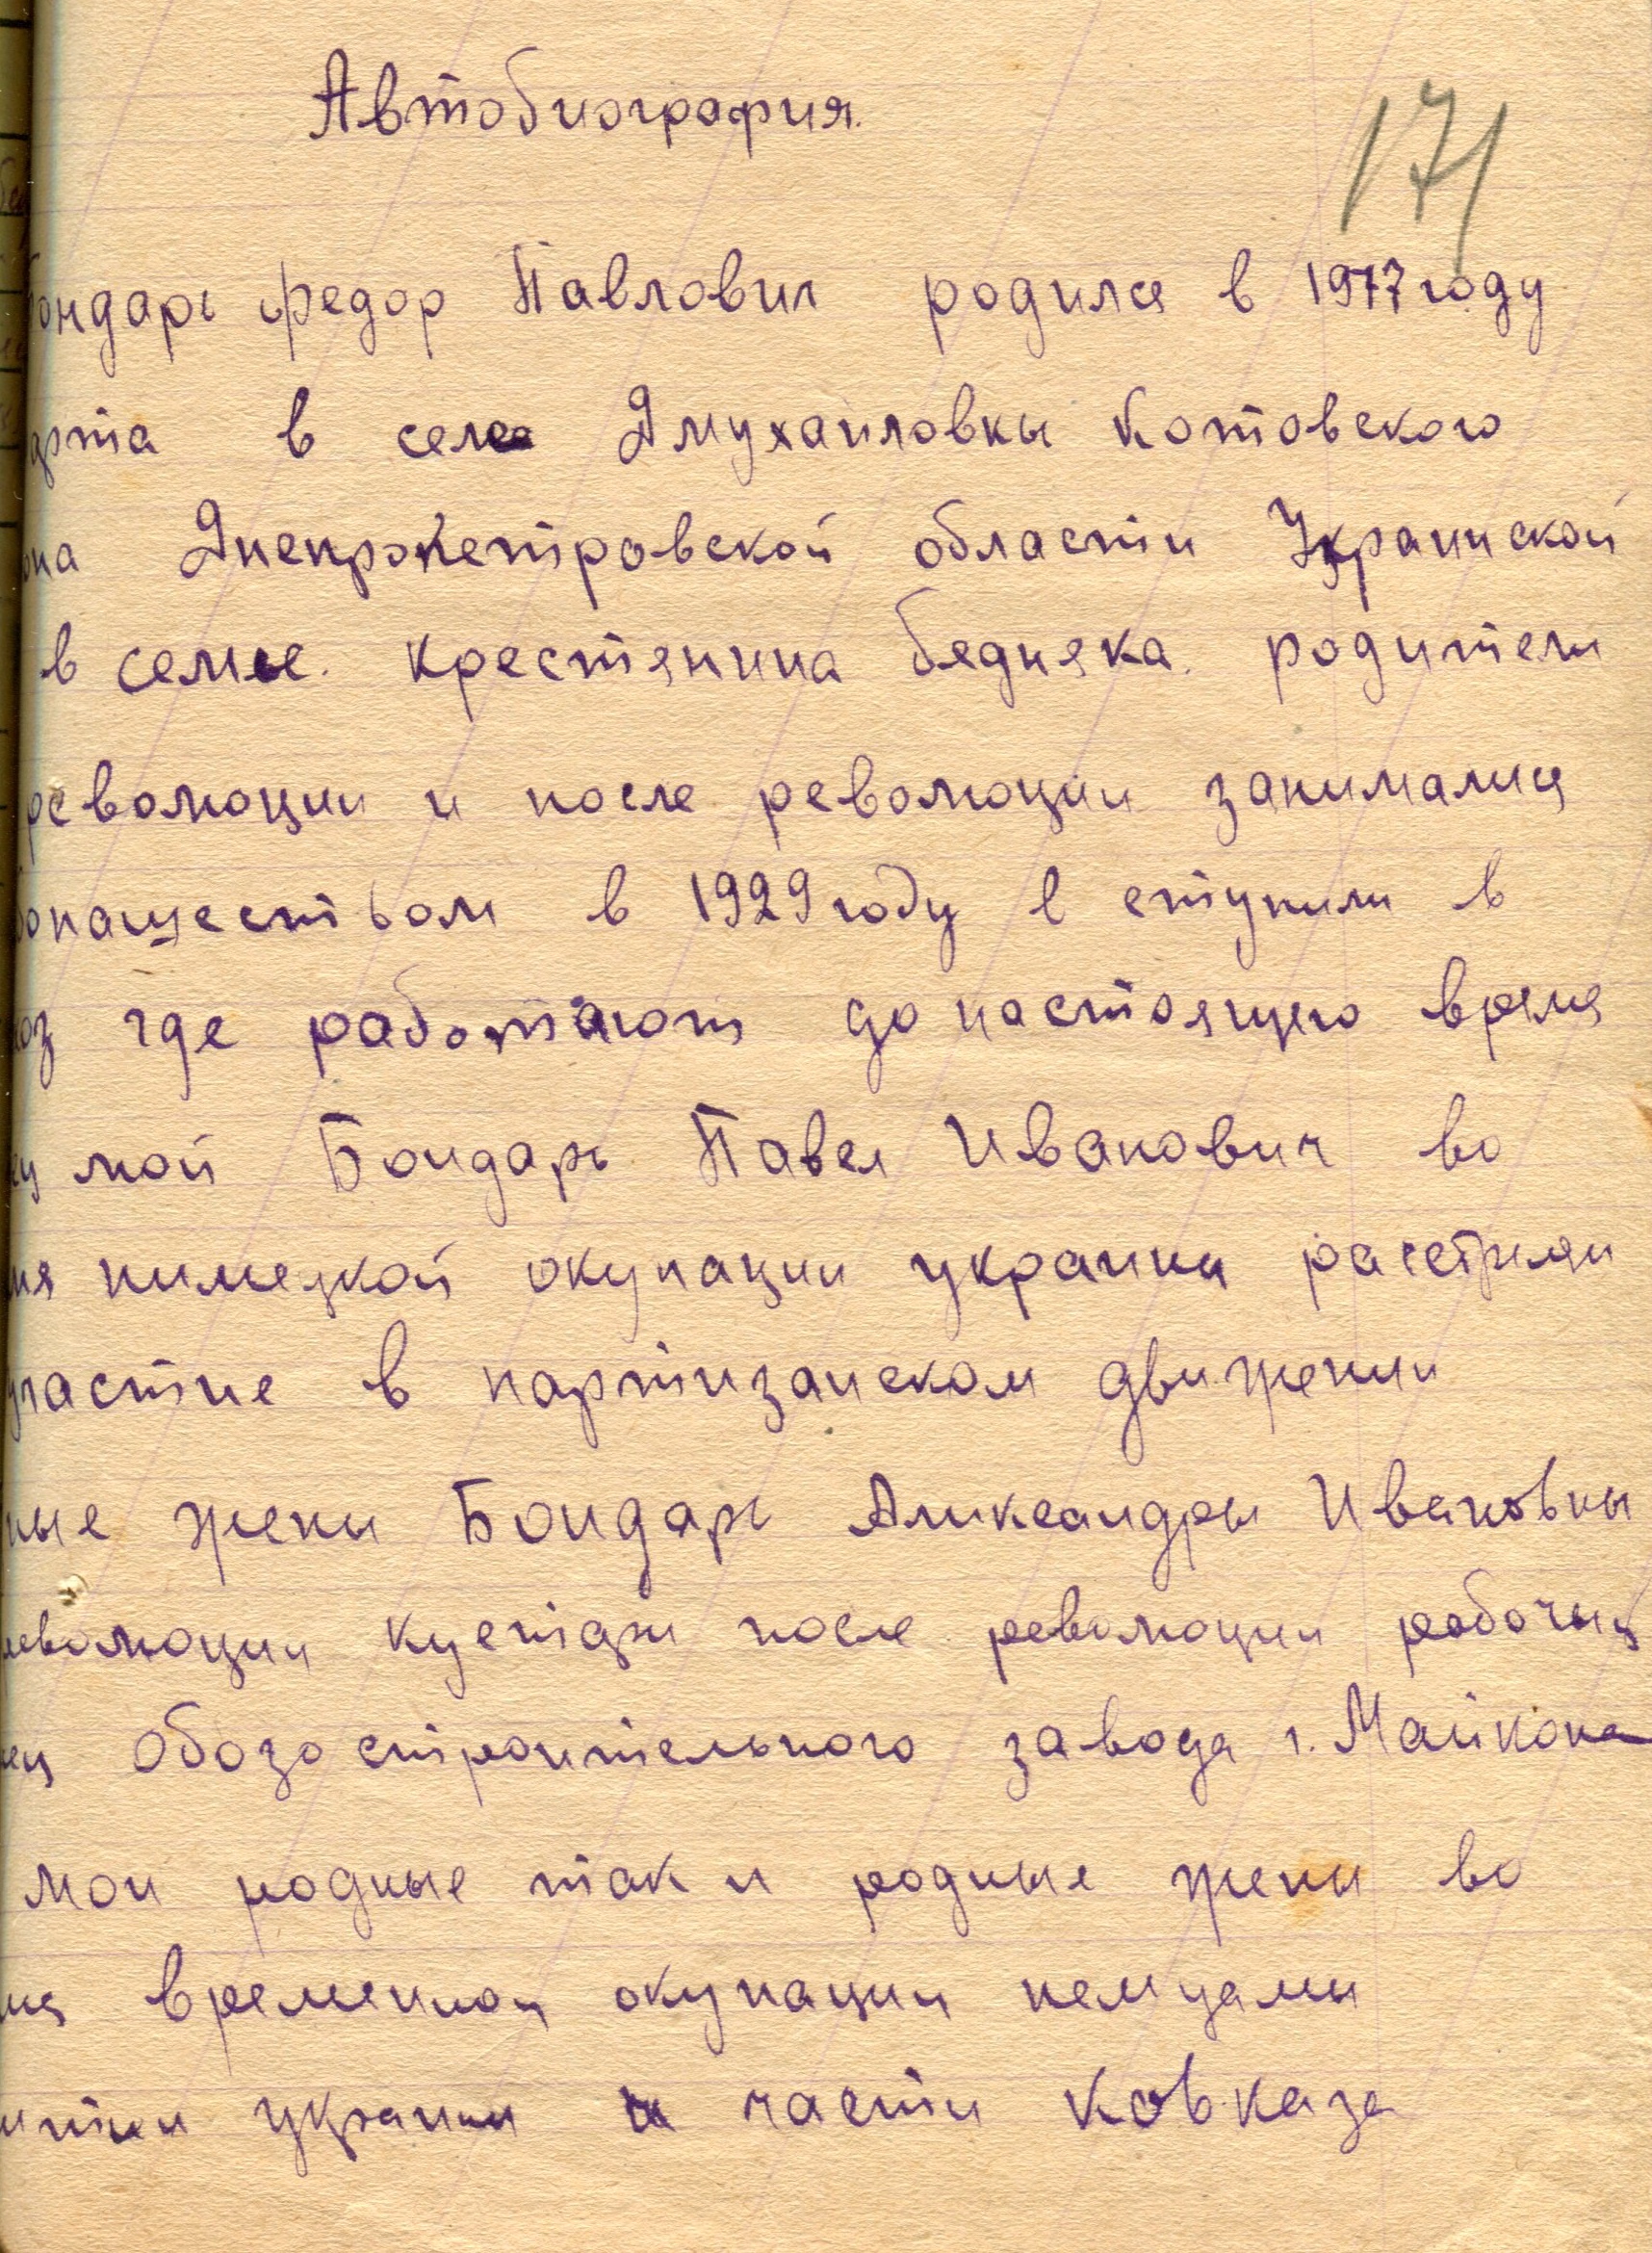 Автобиография.
171
ондарь федор Павлович родился в 1917 году
арта в селе Дмухаиловкы Котовского
она Днепропетровской области Украинской
в семье. крестянина бедняка. родители
революции и после революции занималися
бопашеством в 1929 году в ступили в
хоз где работают до настоящего время
ец мой Бондарь Павел Иванович во
мя нимецкой окупации украины
участие в партизанском движении
ные жены Бондарь Аликсандры Ивановны
революции кустари после революции рабочих
Обозо строительного завода г. Майкопа
мои родные так и родные жены во
мя временной окупации немцами
украины и части Ковказа